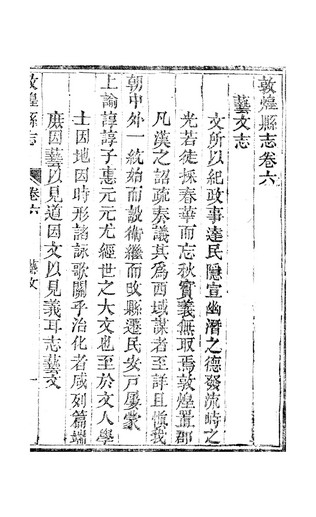 敦煌縣志卷六
藝文志
文所以紀政事達民隱宣幽潛之德發流峙之
光若徒採春華而忘秋實義無取焉敦煌置郡
凡漢之詔疏奏議其為西域謀者至詳且慎我
朝中外一統始而設衛繼而改縣遷民安戶屢蒙
上諭諄諄子惠元元尤經世之大文也至於文人學
士因地因時形諸詠歌關乎治化者咸列篇端
庶因藝以見道因文以見義耳志藝文
敦煌縣志
卷六
藝文
一